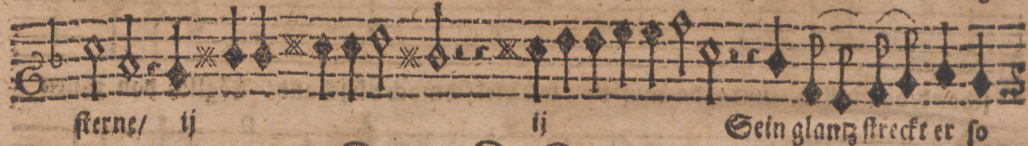 ſterne/ ij ij Sein glantz ſtreckt er ſo